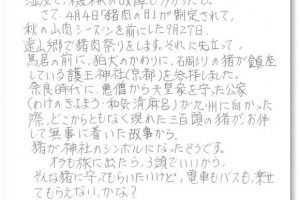 さて、4月4日「猪肉の日」が制定されて、
秋の山肉シーズンを前にした9月27日、
遠山郷で猪肉祭りをします。それに先立って、
鳥居の前に、狛犬のかわりに、石彫りの猪が鎮座
している護王神社(京都)を参拝しました。
奈良時代に、悪僧から天皇家を守った公家
(わけのきよまろ・和気清麻呂)が九州に向かった
際、どこからともなく現れた三百頭の猪が、お伴
して無事に着いた故事から、
猪が神社のシンボルになったそうです。
オラも旅に出たら、3頭でいいから、
そんな猪に守ってもらいたいけど、電車もバスも、乗せ
てもらえない、かな？